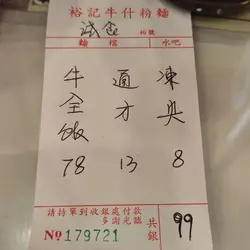 裕記牛什粉麵
枱號
麵檔 水吧
牛 通 凍
全 才 奥
飯
78 13 8
請持單到收銀處付款
多謝光臨
共銀 99
No 179721